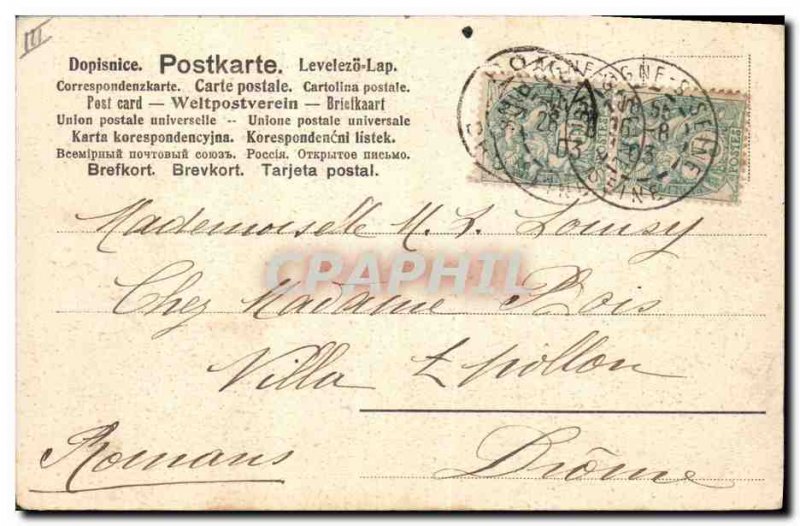 III
Dopisnice. Postkarte. Levelező-Lap.
Correspondenzkarte. Carte postale. Cartolina postale.
Post card — Weltpostverein — Briefkaart
Union postale universelle -- Unione postale universale
Karta korespondencyjna. Korespondenční lístek.
Всемірный почтовый союзъ. Россія. Открытое письмо.
Brefkort. Brevkort. Tarjeta postal.
POSTES
03
03
SEINE
Mademoiselle M. L. Louisy
CPARAPHIL
Chez Madame Bois
Villa Epillon
Romans Drôme